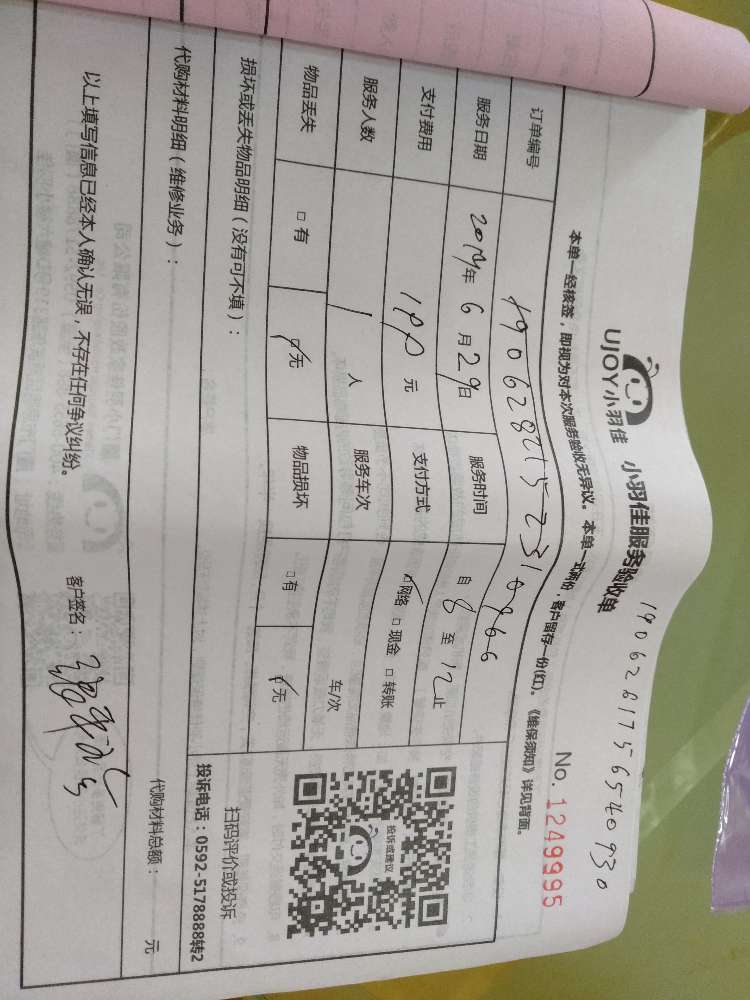 1906281756540930
UJOY小羽佳 小羽佳服务验收单
No. 1249995
本单一经核签，即视为对本次服务验收无异议。本单一式两份，客户留存一份(红)。《维保须知》详见背面。
订单编号
服务日期 2019年 6 月 29日 服务时间 自 8 至 12 止
支付费用 元 支付方式 网络 □ 现金 □ 转账
服务人数 1 人 服务车次 车/次
物品丢失 □ 有 无 物品损坏 □ 有 无
损坏或丢失物品明细（没有可不填）：
代购材料明细（维修业务）：
代购材料总额： 元
以上填写信息已经本人确认无误，不存在任何争议纠纷。
客户签名：
投诉或建议
扫码评价或投诉
投诉电话：0592-5178888转2